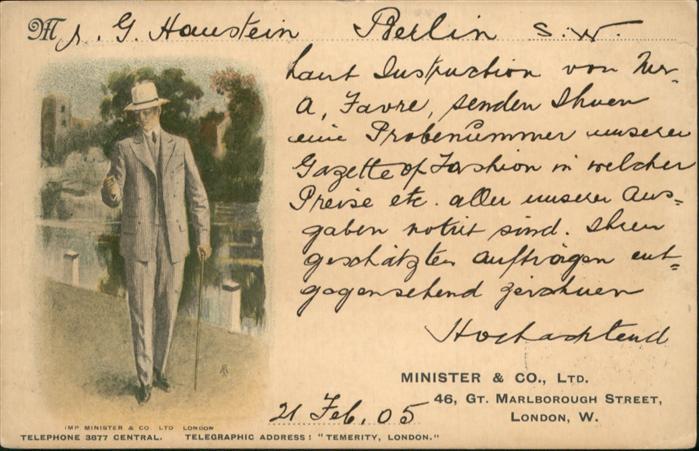 Mr. G. Haustein Berlin S.W.
laut Instruction von Mr.
A. Favre, senden Ihnen
eine Probenummer unserer
Gazette of Fashion in welcher
Preise etc. aller unserer Aus-
gaben notirt sind. Ihren
geschätzten Aufträgen ent-
gegensehend zeichnen
Hochachtend
MINISTER & CO., LTD.
46, GT. MARLBOROUGH STREET,
LONDON, W.
21 Feb. 05
IMP MINISTER & CO LTD LONDON
TELEPHONE 3877 CENTRAL. TELEGRAPHIC ADDRESS: "TEMERITY, LONDON."